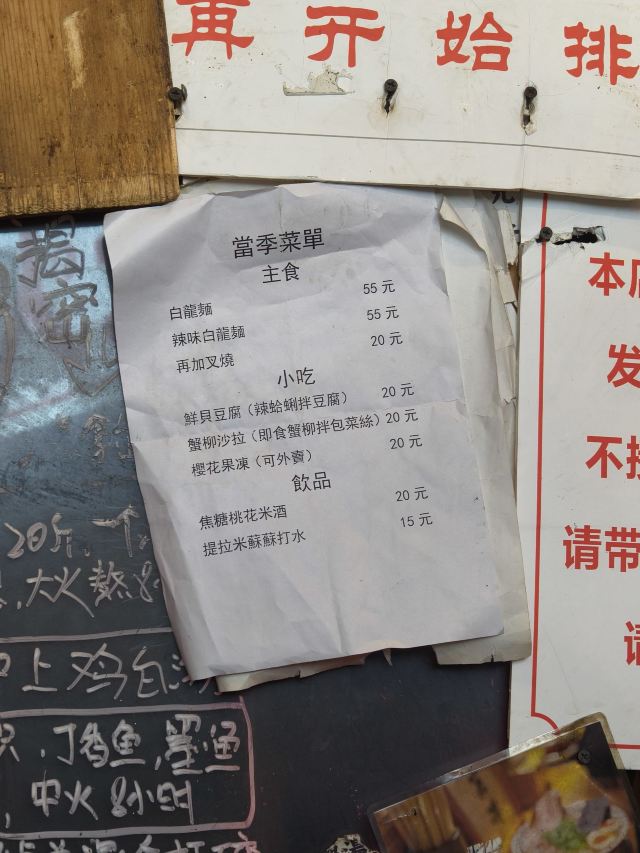 再开始排
當季菜單
主食
白龍麵 55 元
辣味白龍麵 55 元
再加叉燒 20 元
小吃
鮮貝豆腐（辣蛤蜊拌豆腐） 20 元
蟹柳沙拉（即食蟹柳拌包菜絲） 20 元
櫻花果凍（可外賣） 20 元
飲品
焦糖桃花米酒 20 元
提拉米蘇蘇打水 15 元
揭密
大火熬8
上鸡白
丁香鱼，墨鱼
中火8小时
本店
发
不接
请带
请